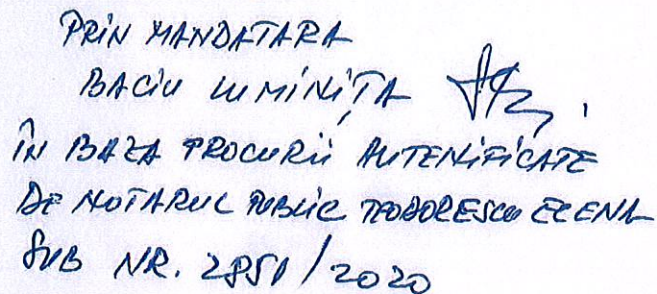 PRIN MANDATARA
BACIU LUMINIȚA
ÎN BAZA PROCURII AUTENTIFICATE
DE NOTARUL PUBLIC TEODORESCU ELENA
SUB NR. 2851/2020